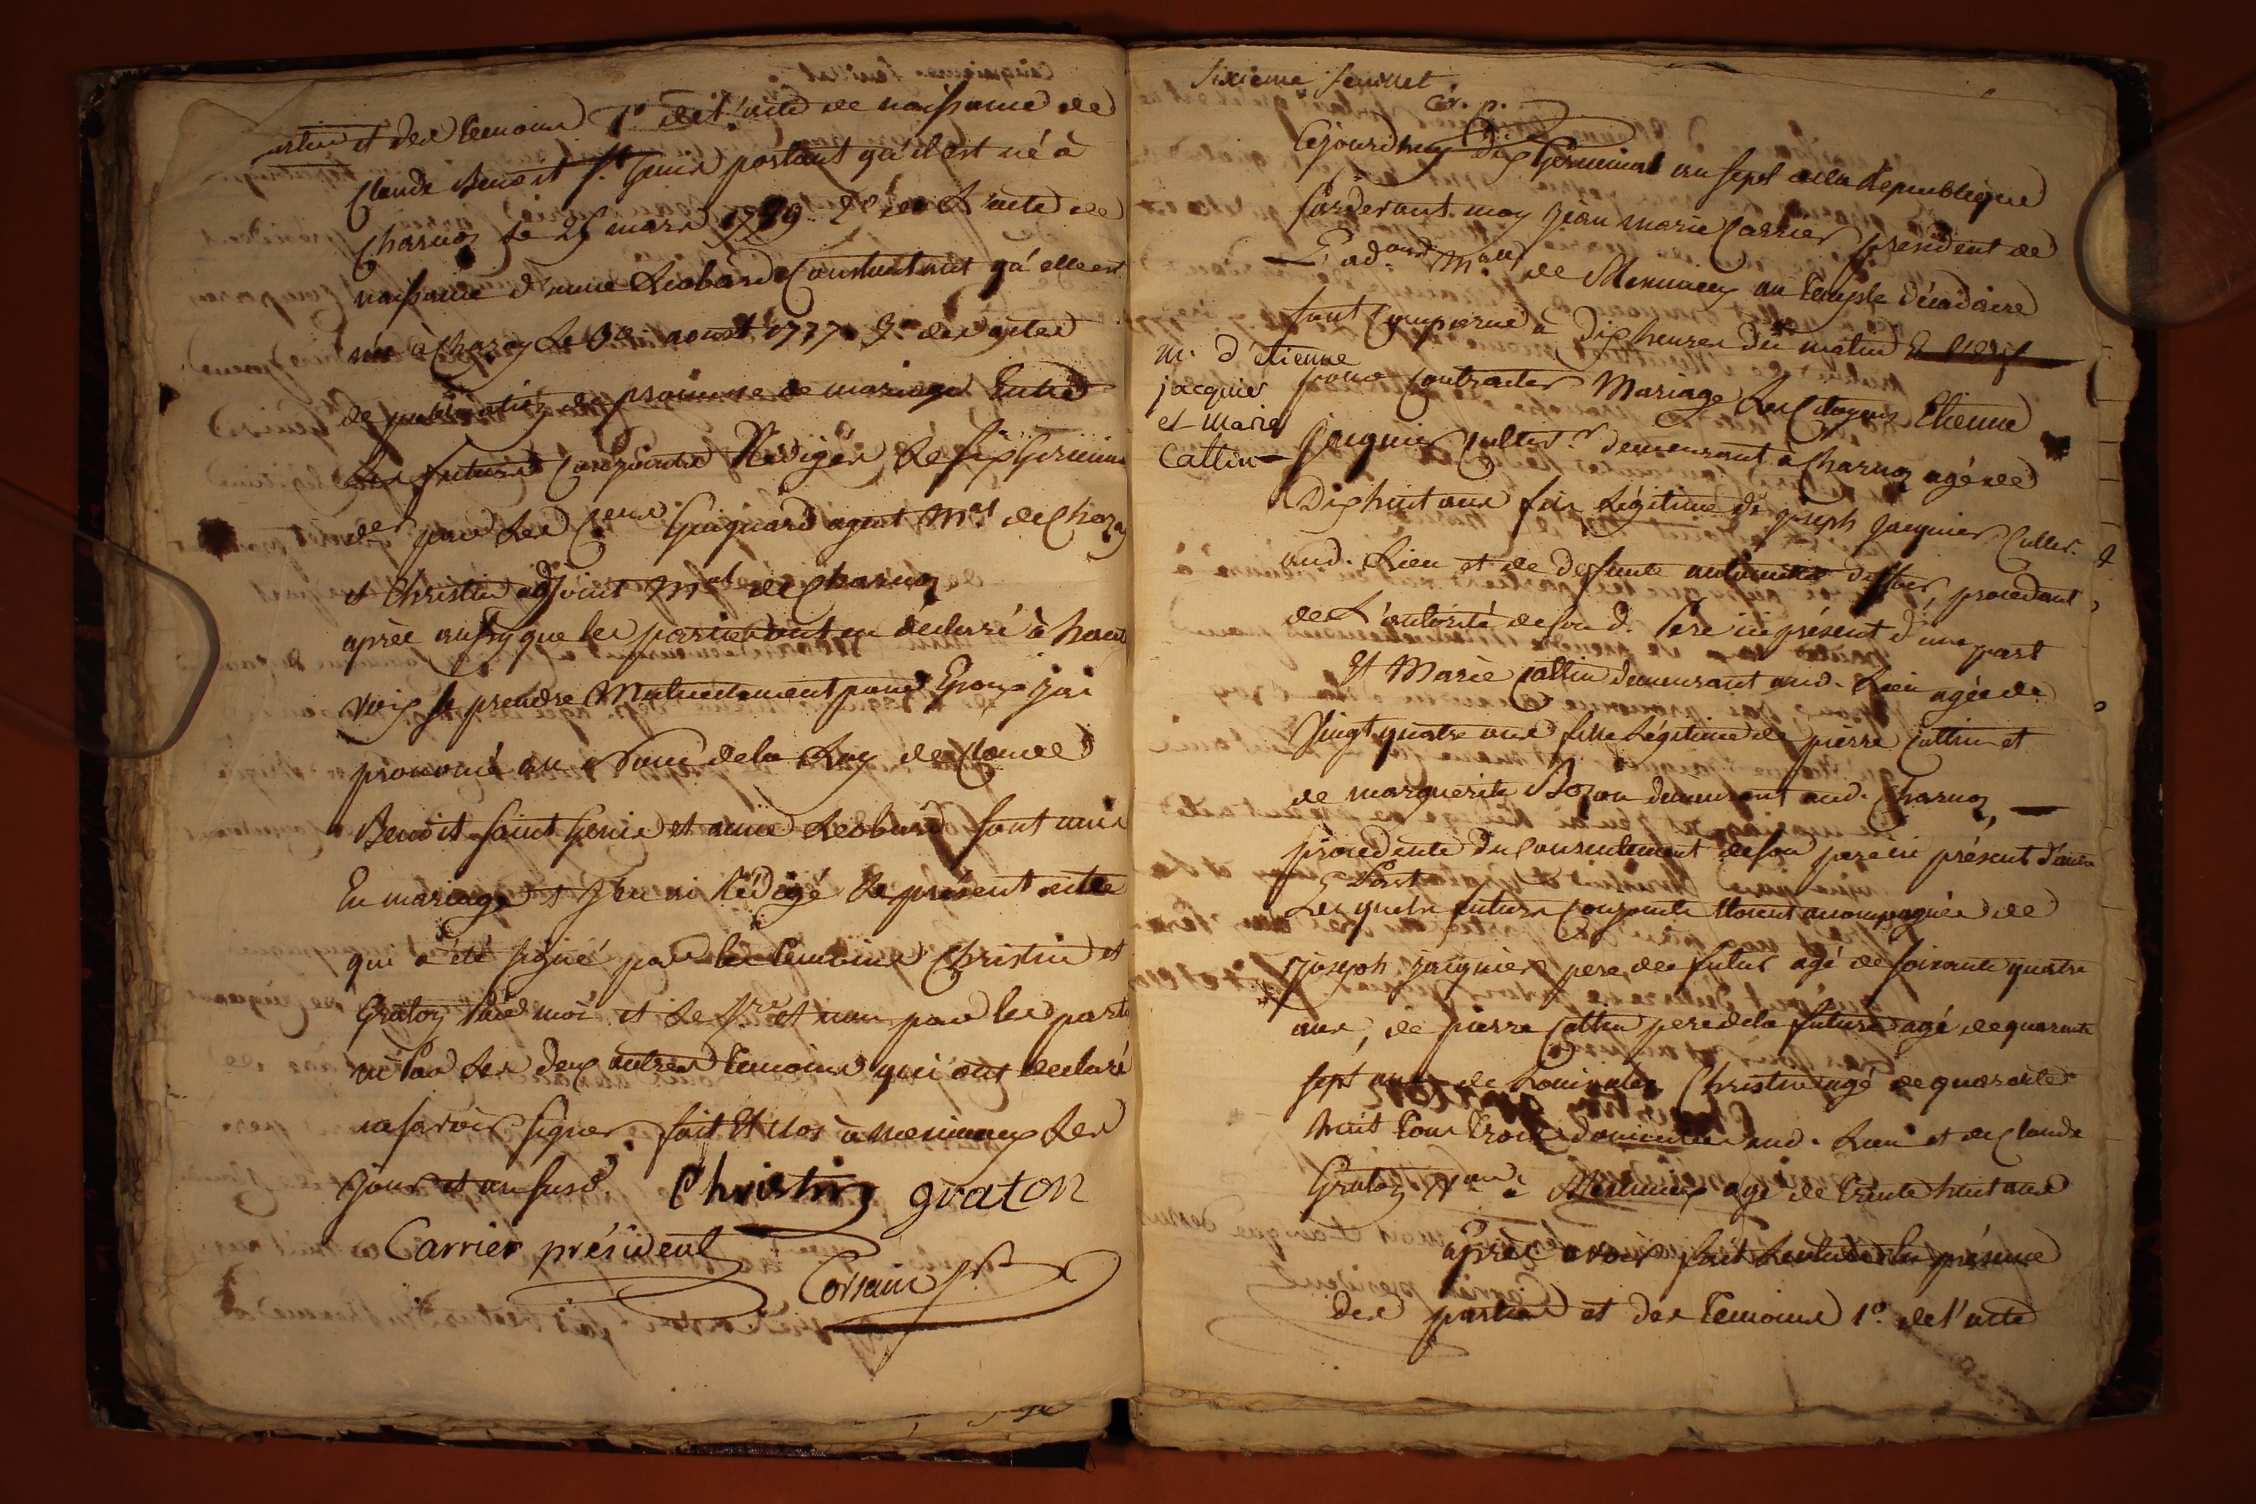 parties et des temoins 1° de l'acte de naissance de
Claude Benoit St Genis portant qu'il est né à
Charnoz le 25 mars 1779. 2° de L'acte de
naissance d'anne Leobard Constatant qu'elle est
née à Chazey Le aoust 1777. 3° des actes
de publication de promesse de mariage Entre
Les futurs Conjoints Rédigés Le six Germinal
der par Les Cens Guignard agent Mal de Chazey
et Christin adjoint Mal de Charnoz
après aussy que les parties ont eu déclaré à haute
voix se prendre Mutuellement pour Epoux j'ai
prononcé au nom de la Loy que Claude
Benoit saint Genis et anne Leobard sont unis
En mariage et j'en ai Rédigé Le présent acte
qui a été signé par les temoins Christin et
Graton avec moi et Le Sre et non par les parties
ni par Les deux autres temoins qui ont declaré
ne savoir signer. fait et clos à Meximieux Les
jour et an susd. Christin graton
Carrier président
Sre
Sixieme feuillet
Car. p.
Cejourdhuy dix Germinal an sept de la Republique
pardevant moy Jean marie Carrier président de
L'adon Male de Meximieux au temple Décadaire
sont Comparus à dix heures du matin
pour Contracter Mariage Les Citoyens Etienne
m. d'etienne
jacquier
et marie
Cattin
Jacquier Cultivr demeurant à Charnoz agé de
Dix huit ans fils Légitime de joseph Jacquier Cultr.
aud. Lieu et de defunte antoinette procedant
de L'autorité de son d. Pere ici présent d'une part
Et Marie Cattin demeurant aud. Lieu agée de
Vingt quatre ans fille Légitime de pierre Cattin et
de marguerite Bozon demeurant aud. Charnoz
procedente du Consentement de son pere ici présent d'autre
Part
Lesquels futurs Conjoints etoient accompagnés de
joseph jacquier pere du futur agé de soixante quatre
ans, de pierre Cattin pere de la future agé de quarante
sept ans de Christin agé de quarante
huit tous trois domiciliés aud. Lieu et de Claude
Graton à Meximieux agé de trente huit ans
après avoir fait Lecture en présence
des parties et des temoins 1°. de l'acte